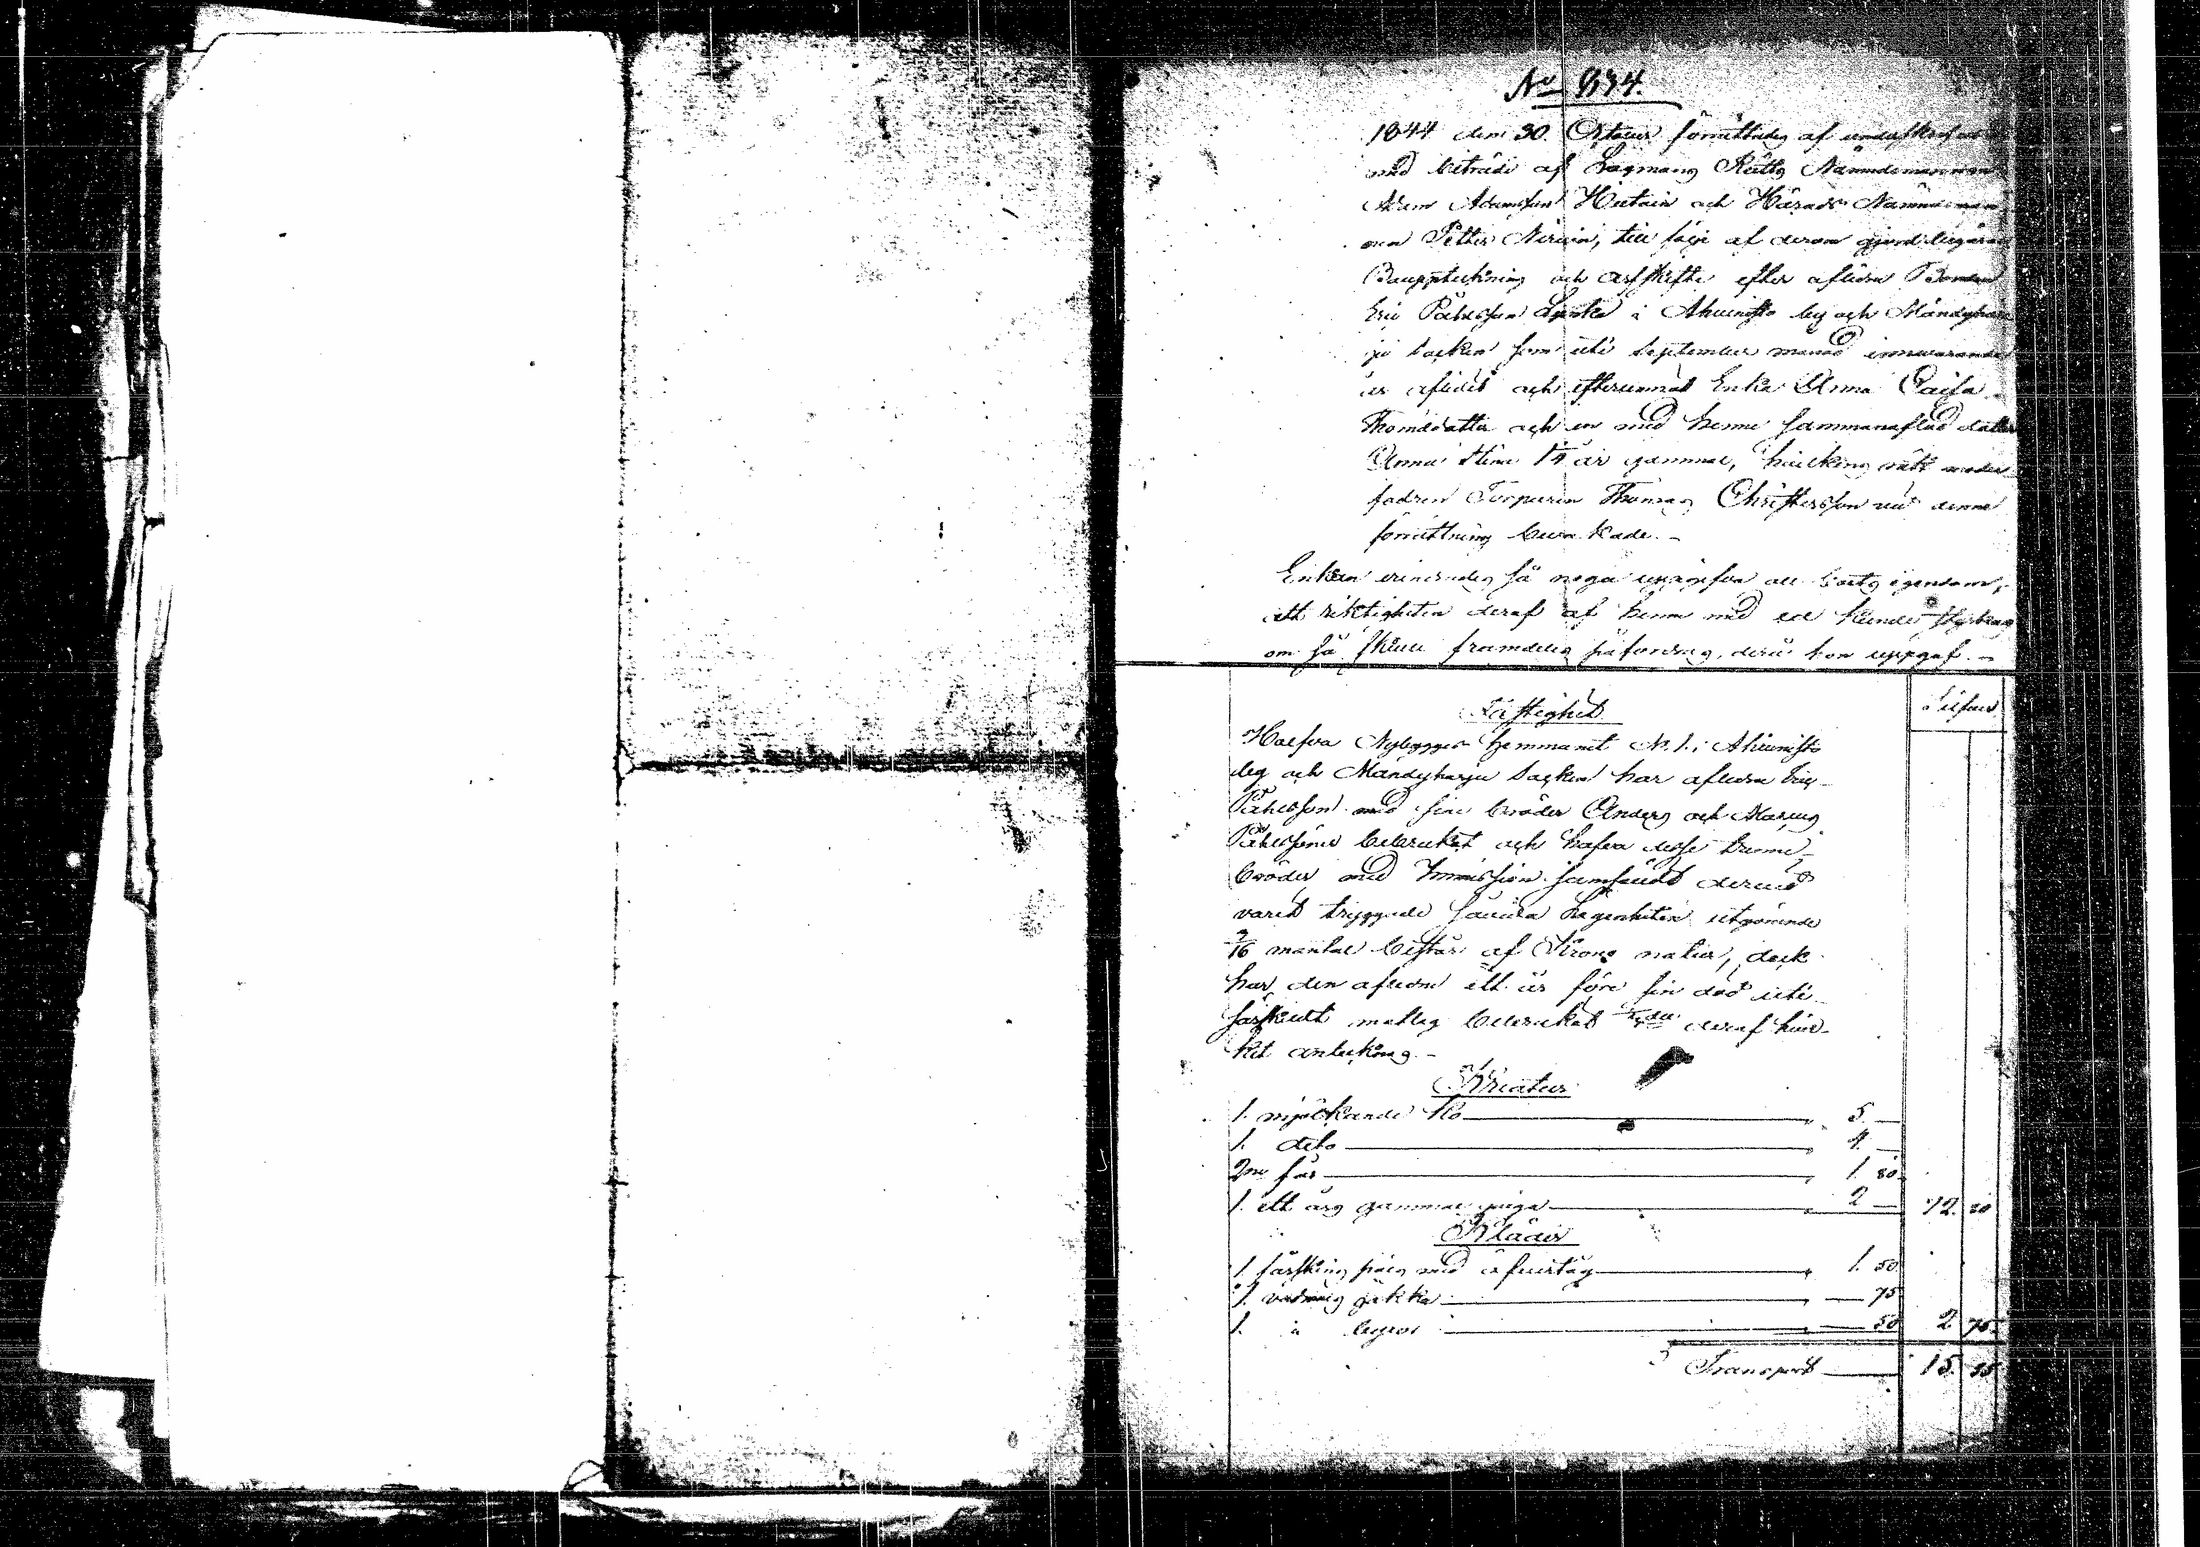 No 834.
1844 den 30. October förrättades af undertecknad
med biträde af Lagmans Rätts Nämndemannen
Adam Adamsson Hietain och Härads Nämndeman
nen Petter Nirwin, till följe af derom gjord begäran
Bouppteckning och arfskifte efter aflidne Bonden
Eric Påhlsson i Ahvenisto by och Mändyhar
ju socken som uti September månad innevarande
år aflidit och efterlemnat Enka Anna Caisa
Thomædotter och en med henne sammanaflad dotter
Anna Stina 14 år gammal, hvilkens rätt moder
fadren Torparen Thomas Christersson vid denne
förrättning bevakade. –
Enkan erinrades så noga uppgifva all boets egendom,
att riktigheten deraf af henne med ed kunde styrkas
om så skulle framdeles påfordras, derå hon uppgaf. –
Fastighet
Silfver
Halfva Nybygges hemmanet No 1. i Ahvenisto
by och Mändyharju socken har aflidne Eric
Påhlsson med sine bröder Anders och Marcus
Påhlssöner bebrukat och hafva desse trenne
bröder med Immission samfäldt derwid
varit tryggade sålunda Lägenheten utgörande
/16 mantal består af Krono natur, dock
har den aflidne ett år före sin död uti
särskildt matlag bebrukat deraf hvil-
ket antecknas. –
Kreatur
1. mjölkande ko 5. —
1. dito 4. —
2ne får 1. 20.
1. ett års gammal qviga 2 — 12. 20
Kläder
1. fårskins päls med öfvertåg 1. 50
1. vadmals jacka — 75
1. " byxor — 50 2 75.
Transport 15.